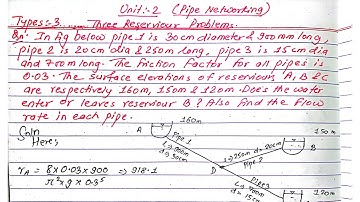 Unit:-2 (Pipe Networking)
Types:-3 Three Reserviour Problems.
Qn: In fig below pipe 1 is 30 cm diameter & 900 m long,
pipe 2 is 20 cm dia & 250 m long, pipe 3 is 15 cm dia
and 700 m long. The friction factor for all pipes is
0.03. The surface elevations of reserviour, A, B & C
are respectively 160m, 150m & 120m. Does the water
enter or leaves reserviour B? Also find the flow
rate in each pipe.
Soln
Here;
160m
A
150m
B
Pipe 1
L=900m
d=30cm
L=250m d=20cm
Pipe 2
D
Pipe 3
L=700m
d=15cm
120m
rA = 8×0.03×900 / π²×g×0.3⁵ => 918.1